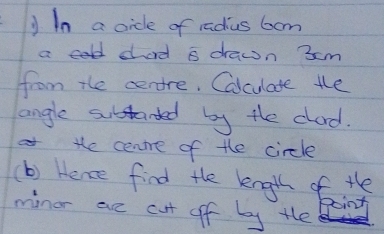 1) In a circle of radius 6cm
a chord is drawn 3cm
from the centre. Calculate the
angle substanded by the chord.
at the centre of the circle
(b) Hence find the length of the
minor arc cut off by the point